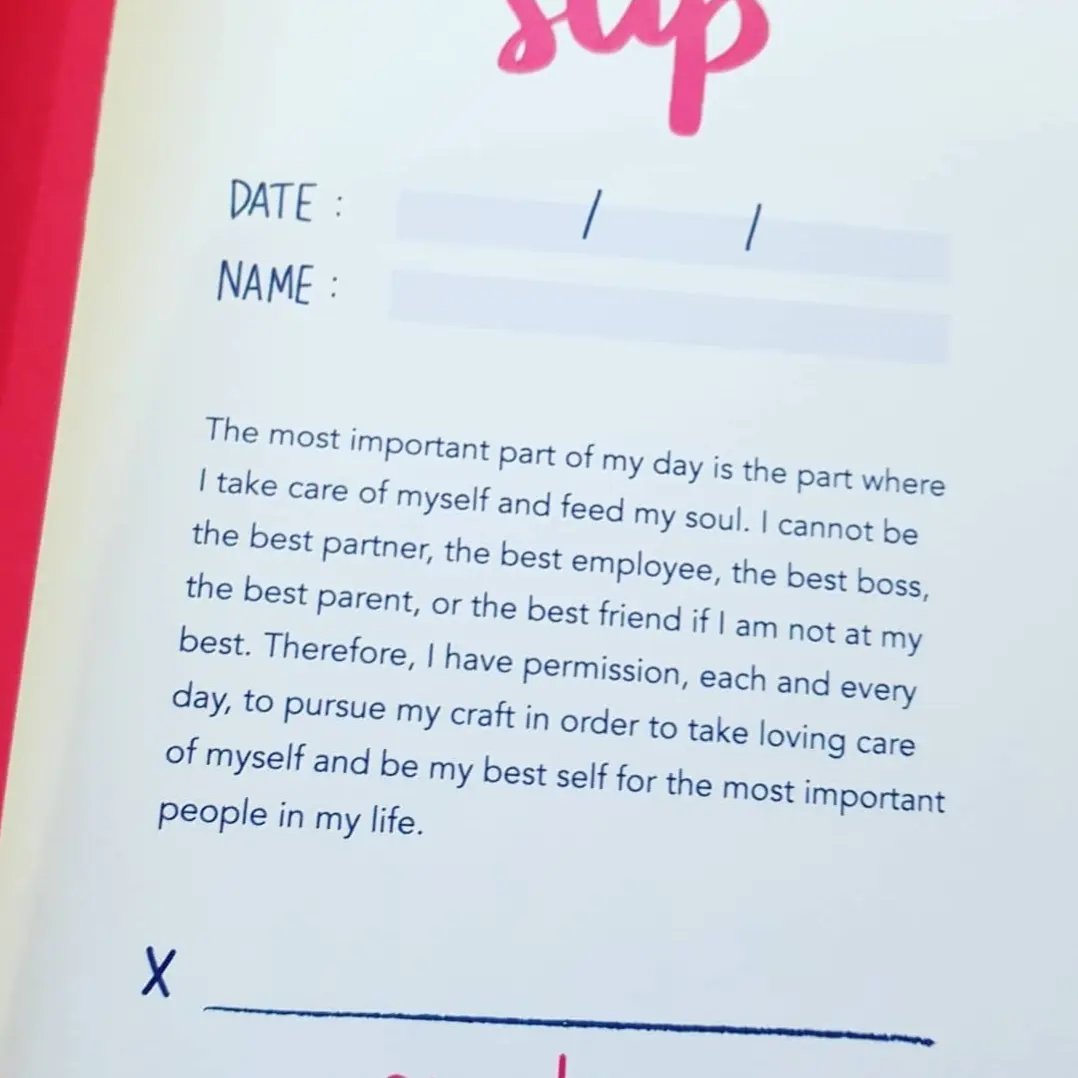 slip
DATE : / /
NAME :
The most important part of my day is the part where
I take care of myself and feed my soul. I cannot be
the best partner, the best employee, the best boss,
the best parent, or the best friend if I am not at my
best. Therefore, I have permission, each and every
day, to pursue my craft in order to take loving care
of myself and be my best self for the most important
people in my life.
X